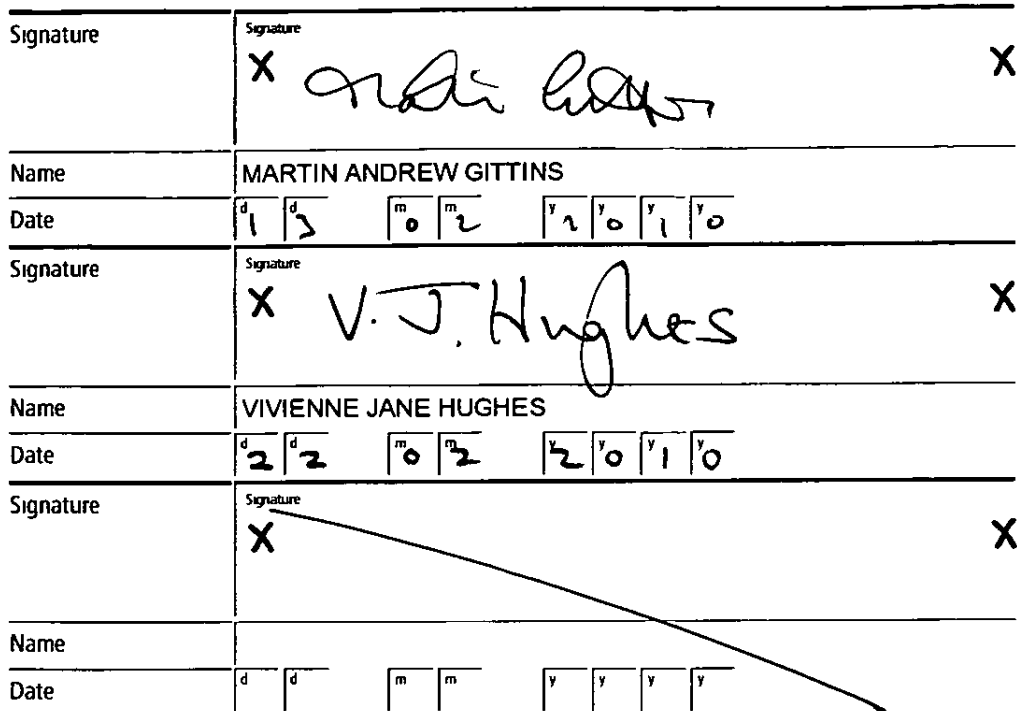 Signature Signature
X Martin Gittins X
Name MARTIN ANDREW GITTINS
Date d1 d3 m0 m2 y2 y0 y1 y0
Signature Signature
X V. J. Hughes X
Name VIVIENNE JANE HUGHES
Date d2 d2 m0 m2 y2 y0 y1 y0
Signature Signature
X X
Name
Date d d m m y y y y